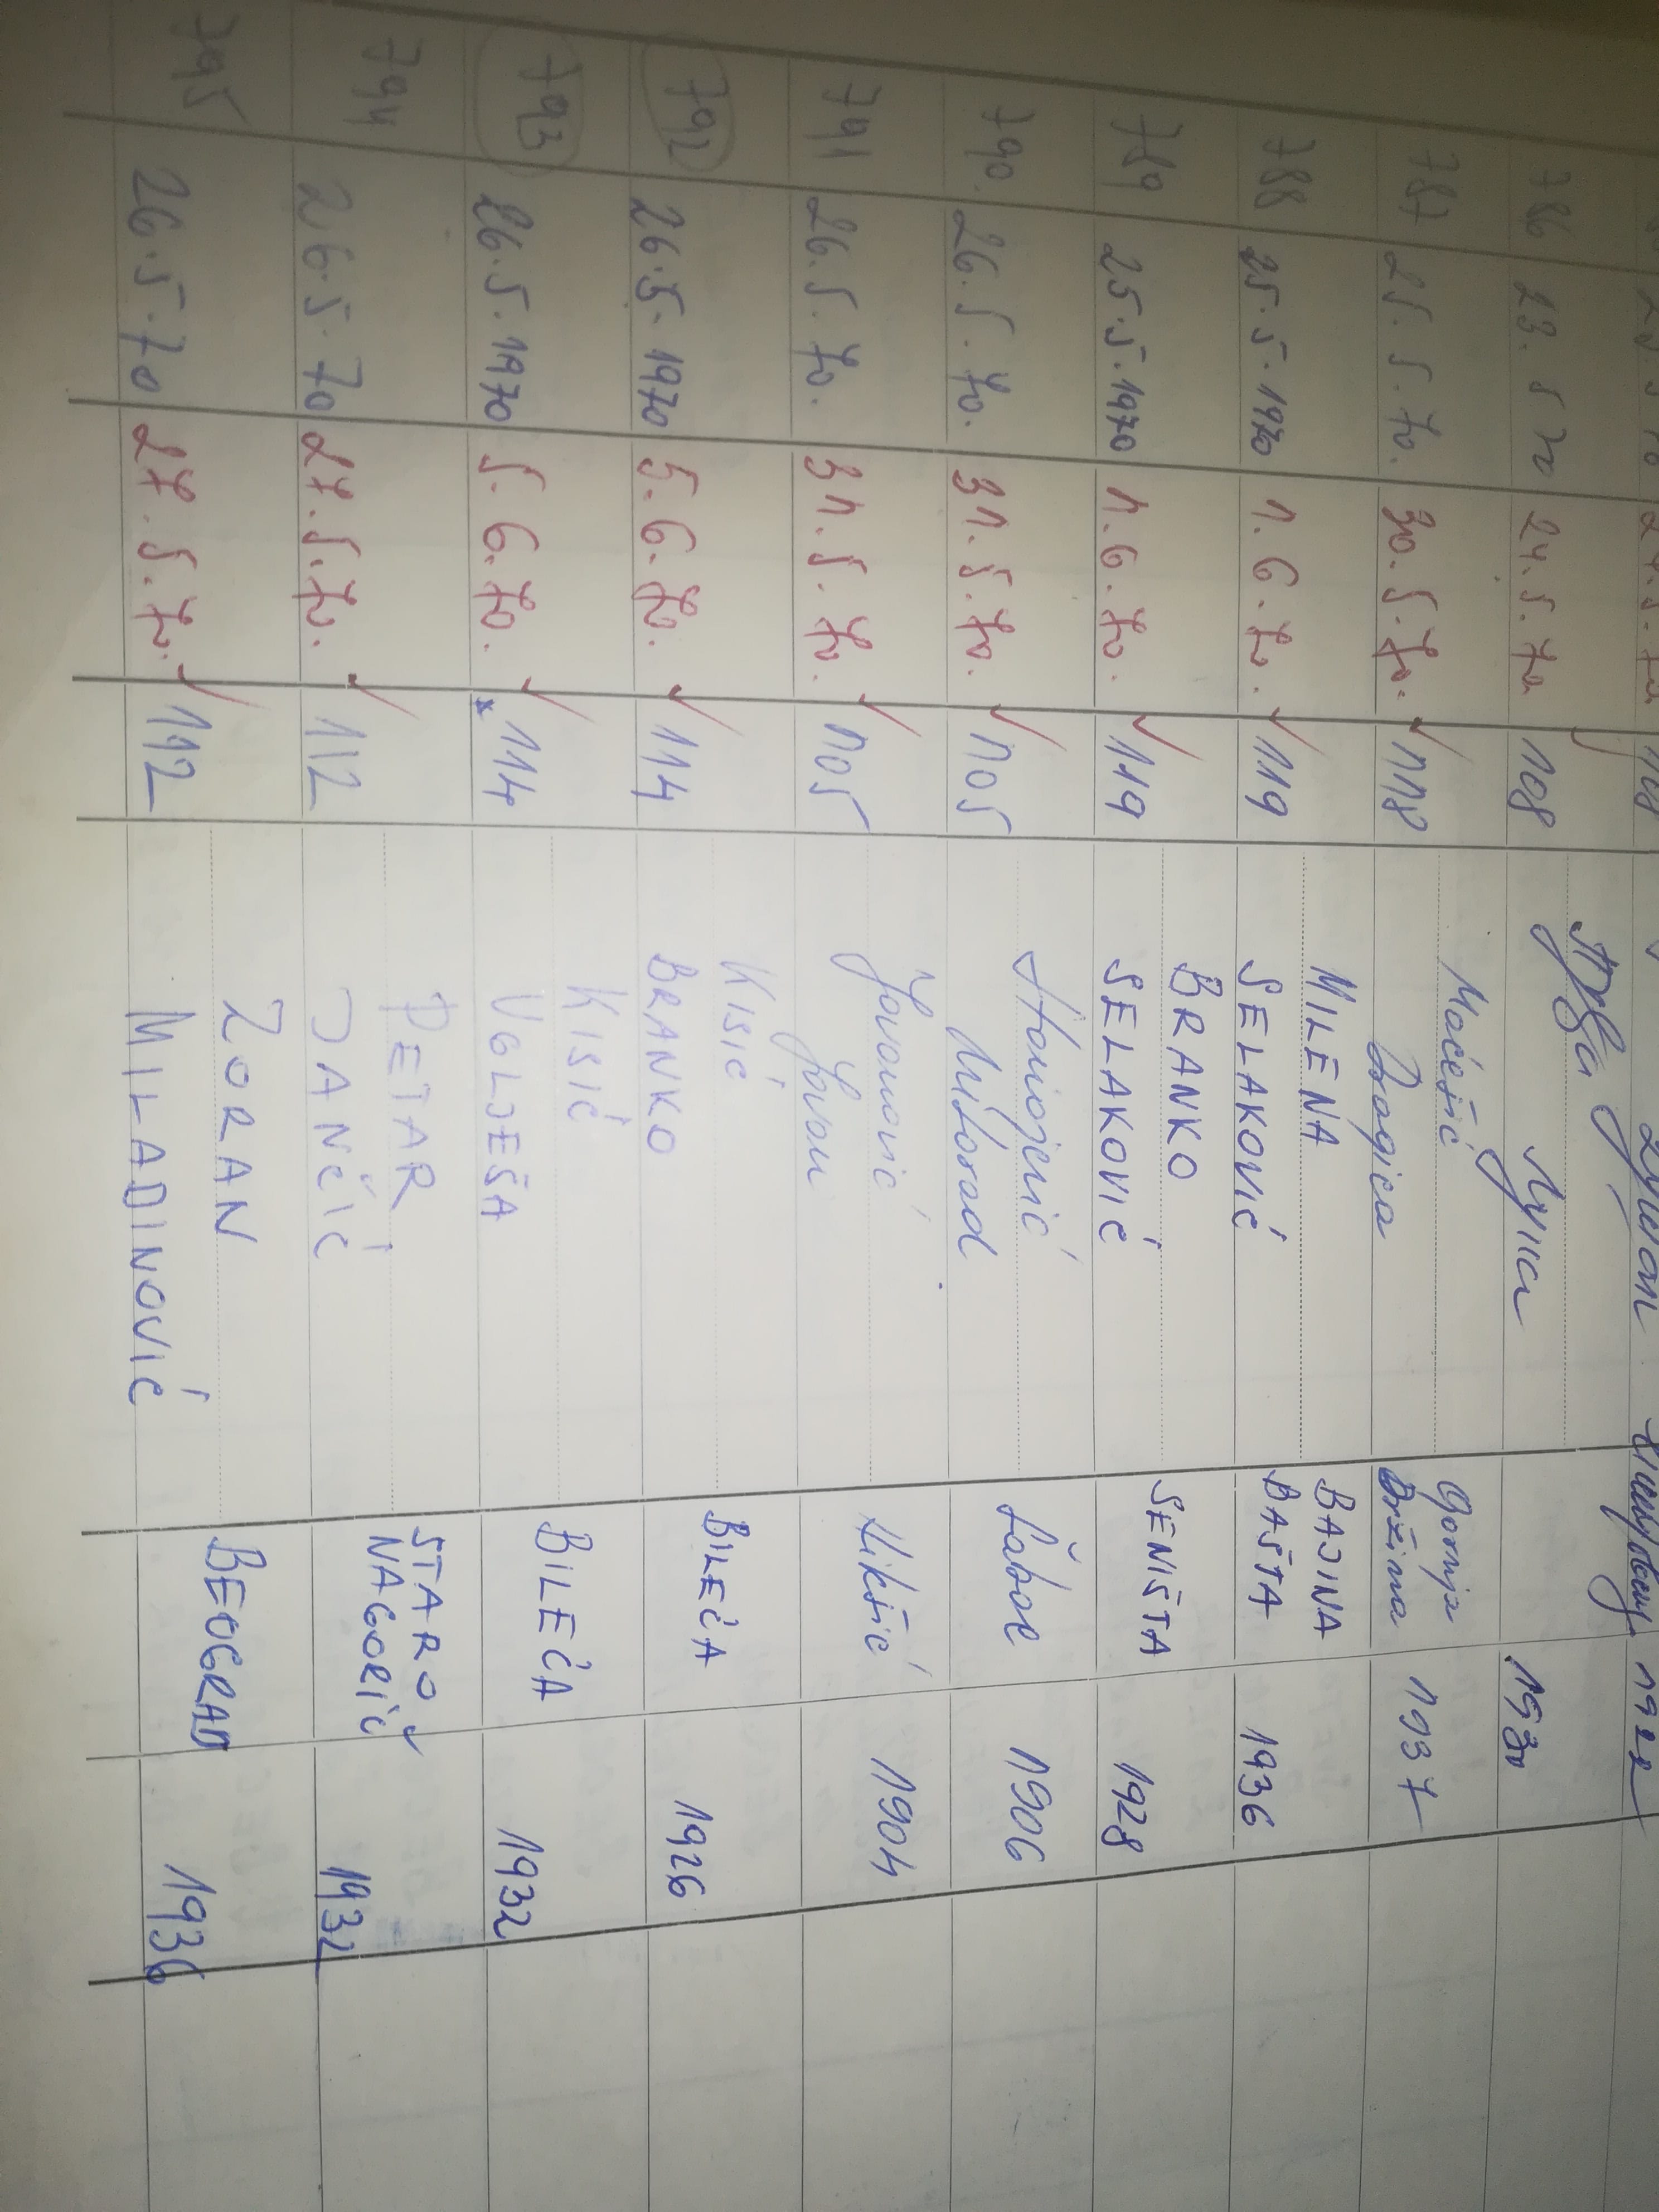 786 23. 5 70 24. 5. 70. 108 1930
787 25. 5. 70. 30. 5. 70. 118 Maćešić Gornja
Dragica Držina 1937
788 25. 5. 1970 1. 6. 70. 119 MILENA BAJINA
SELAKOVIĆ BAŠTA 1936
789 25. 5. 1970 1. 6. 70. 119 BRANKO SENIŠTA
SELAKOVIĆ 1928
790. 26. 5. 70. 31. 5. 70. 105 Stanojević Šabac
Milorad 1906
791 26. 5. 70. 31. 5. 70. 105 Jovanović Nikšić
Jovan 1904
792 26. 5. 1970 5. 6. 70. 114 KISIĆ BILEĆA
BRANKO 1926
793 26. 5. 1970 5. 6. 70. 114 KISIĆ BILEĆA
UGLJEŠA 1932
794 26. 5. 70 27. 5. 70. 112 PETAR STARO
JANČIĆ NAGORIČ 1932
795 26. 5. 70 27. 5. 70. 112 ZORAN BEOGRAD
MILADINOVIĆ 1936